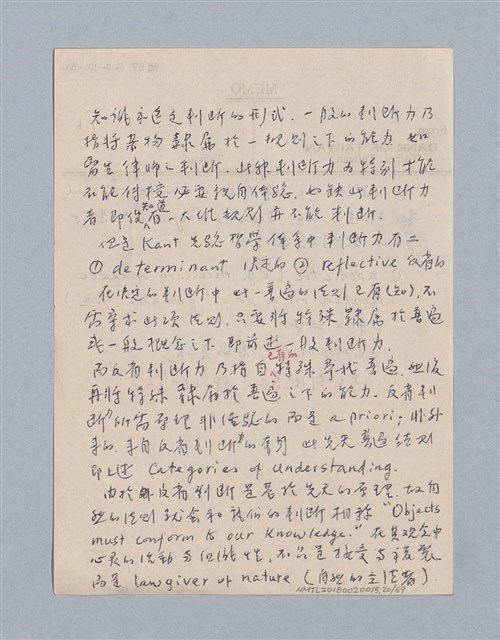 知識永遠是判斷的形式. 一般的判斷力乃
指將某物隸屬於一規則之下的能力. 如
醫生律師之判斷. 此種判斷力為特別才能
不能傳授 必要親自体驗. 如缺此判斷力
者 即使知道有一大堆規則 再不能判斷.
但是 Kant 先驗哲學体系中 判斷力有二
① determinant 決定的 ② reflective 反省的
在決定的判斷中 此一普遍的法則已有(知), 不
需尋求此項法則. 只要將特殊隸屬於普遍
或一般概念之下 即前述一般判斷力.
而反省判斷力乃指自已有的特殊尋找普遍. 然後
再將特殊隸屬於普遍之下的能力. 反省判
斷力所需原理非經驗的 而是 a priori; 非外
來的. 來自反省判斷力的本身 此先天普遍法則
即上述 Categories of understanding.
由於反省判斷是基於先天的原理. 故自
然的法則就會和我們的判斷相称 "Objects
must conform to our knowledge." 在其观念中
心灵的活動 只是接受與複製
而是 lawgiver of nature (自然的立法者).
NMTL20180020015.20/69